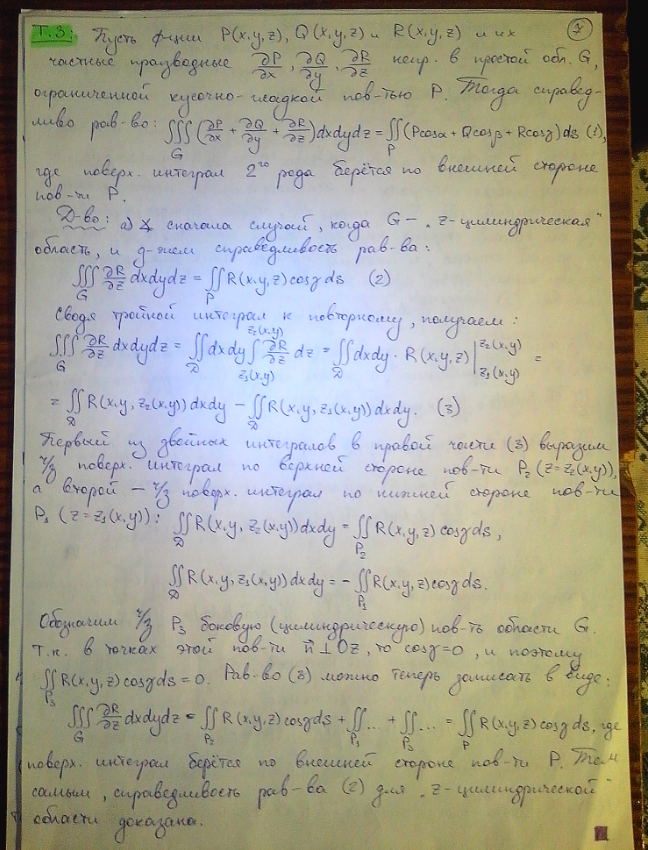 7
Т.3: Пусть ф-ции P(x,y,z), Q(x,y,z) и R(x,y,z) и их
частные производные ∂P/∂x, ∂Q/∂y, ∂R/∂z непр. в простой обл. G,
ограниченной кусочно-гладкой пов-тью P. Тогда справед-
ливо рав-во: ∭_G (∂P/∂x + ∂Q/∂y + ∂R/∂z)dxdydz = ∬_P (Pcosα + Qcosβ + Rcosγ)ds (1),
где поверх. интеграл 2го рода берётся по внешней стороне
пов-ти P.
Д-во: а) ∡ сначала случай, когда G – „z-цилиндрическая"
область, и д-жем справедливость рав-ва:
∭_G ∂R/∂z dxdydz = ∬_P R(x,y,z)cosγ ds (2)
Сводя тройной интеграл к повторному, получаем:
∭_G ∂R/∂z dxdydz = ∬_D dxdy ∫_{z₁(x,y)}^{z₂(x,y)} ∂R/∂z dz = ∬_D dxdy · R(x,y,z)|_{z₁(x,y)}^{z₂(x,y)} =
= ∬_D R(x,y,z₂(x,y))dxdy – ∬_D R(x,y,z₁(x,y))dxdy. (3)
Первый из двойных интегралов в правой части (3) выразим
ч/з поверх. интеграл по верхней стороне пов-ти P₂ (z=z₂(x,y)),
а второй – ч/з поверх. интеграл по нижней стороне пов-ти
P₁ (z=z₁(x,y)): ∬_D R(x,y,z₂(x,y))dxdy = ∬_{P₂} R(x,y,z)cosγ ds,
∬_D R(x,y,z₁(x,y))dxdy = –∬_{P₁} R(x,y,z)cosγ ds.
Обозначим ч/з P₃ боковую (цилиндрическую) пов-ть области G.
Т.к. в точках этой пов-ти n⃗ ⊥ Oz, то cosγ=0, и поэтому
∬_{P₃} R(x,y,z)cosγ ds = 0. Рав-во (3) можно теперь записать в виде:
∭_G ∂R/∂z dxdydz = ∬_{P₂} R(x,y,z)cosγ ds + ∬_{P₁} ... + ∬_{P₃} ... = ∬_P R(x,y,z)cosγ ds, где
поверх. интеграл берётся по внешней стороне пов-ти P. Тем
самым, справедливость рав-ва (2) для „z-цилиндрической"
области доказана.